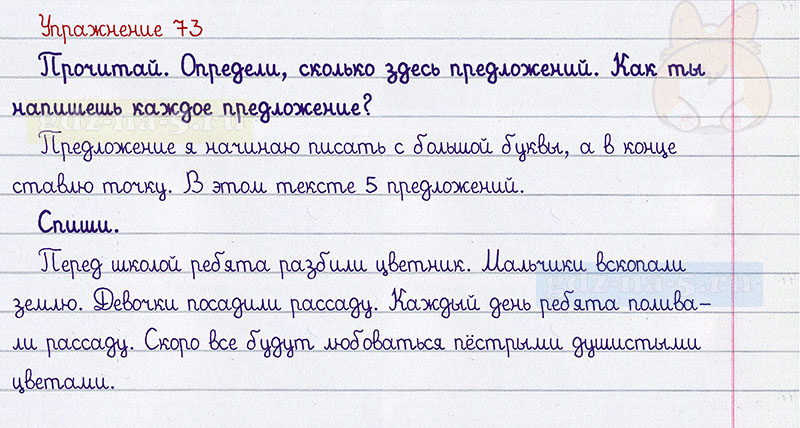 Упражнение 73
Прочитай. Определи, сколько здесь предложений. Как ты
напишешь каждое предложение?
Предложение я начинаю писать с большой буквы, а в конце
ставлю точку. В этом тексте 5 предложений.
Спиши.
Перед школой ребята разбили цветник. Мальчики вскопали
землю. Девочки посадили рассаду. Каждый день ребята полива-
ли рассаду. Скоро все будут любоваться пёстрыми душистыми
цветами.